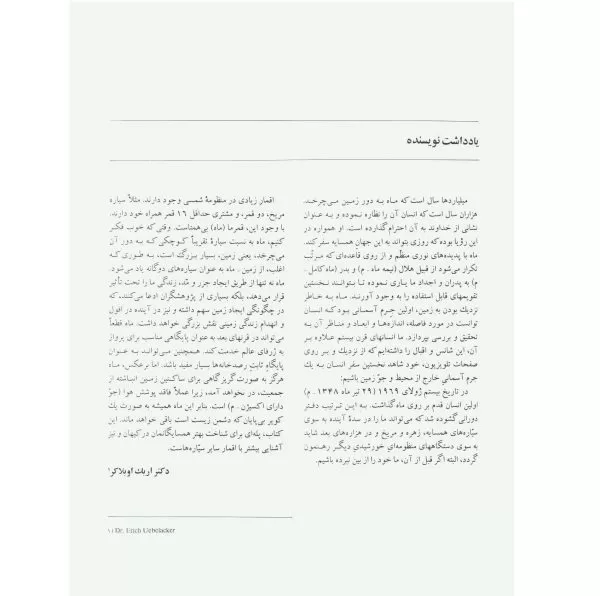 یادداشت نویسنده
میلیاردها سال است که ماه به دور زمین می‌چرخد.
هزاران سال است که انسان آن را نظاره نموده و به عنوان
نشانی از خداوند به آن احترام گذارده است. او همواره در
این رؤیا بوده که روزی بتواند به این جهان همسایه سفر کند.
ماه با پدیده‌های نوری منظّم و از روی قاعده‌ای که مرتّب
تکرار می‌شود از قبیل هلال (نیمه ماه . م) و بدر (ماه کامل .
م) به پدران و اجداد ما یاری نموده تا بتوانند نخستین
تقویمهای قابل استفاده را به وجود آورند. ماه به خاطر
نزدیك بودن به زمین، اولین جرم آسمانی بود که انسان
توانست در مورد فاصله، اندازه‌ها و ابعاد و مناظر آن به
تحقیق و بررسی بپردازد. ما انسانهای قرن بیستم علاوه بر
آن، این شانس و اقبال را داشته‌ایم که از نزدیك و بر روی
صفحات تلویزیون، خود شاهد نخستین سفر انسان به یك
جرم آسمانی خارج از محیط و جوّ زمین باشیم:
در تاریخ بیستم ژولای ۱۹۶۹ (۲۹ تیر ماه ۱۳۴۸ . م)
اولین انسان قدم بر روی ماه گذاشت. به این ترتیب دفتر
دورانی گشوده شد که می‌تواند ما را در سدهٔ آینده به سوی
سیّاره‌های همسایه، زهره و مریخ و در هزاره‌های بعد شاید
به سوی دستگاههای منظومه‌ای خورشیدی دیگر رهنمون
گردد، البته اگر قبل از آن، ما خود را از بین نبرده باشیم.
اقمار زیادی در منظومهٔ شمسی وجود دارند. مثلاً سیاره
مریخ، دو قمر، و مشتری حداقل ۱۶ قمر همراه خود دارند.
با وجود این، قمر ما (ماه) بی‌همتاست. وقتی که خوب فکر
کنیم، ماه به نسبت سیارهٔ تقریباً کوچکی که به دور آن
می‌چرخد، یعنی زمین، بسیار بزرگ است، به طوری که
اغلب، از زمین . ماه به عنوان سیاره‌های دوگانه یاد می‌شود.
ماه نه تنها از طریق ایجاد جزر و مدّ، زندگی ما را تحت تأثیر
قرار می‌دهد، بلکه بسیاری از پژوهشگران ادعا می‌کنند، که
در چگونگی ایجاد زمین سهم داشته و نیز در آینده در افول
و انهدام زندگی زمینی نقش بزرگی خواهد داشت. ماه قطعاً
می‌تواند در قرنهای بعد به عنوان پایگاهی مناسب برای پرواز
به ژرفای عالم خدمت کند. همچنین می‌تواند به عنوان
پایگاه ثابتِ رصدخانه‌ها بسیار مفید باشد. اما برعکس، ماه
هرگز به صورت گریزگاهی برای ساکنین زمین انباشته از
جمعیت، در نخواهد آمد، زیرا عملاً فاقد پوشش هوا (جوّ
دارای اکسیژن . م) است. بنابر این ماه همیشه به صورت یك
کویر بی‌پایان که دشمن زیست است باقی خواهد ماند. این
کتاب، پله‌ای برای شناخت بهتر همسایگانمان در کیهان و نیز
آشنایی بیشتر با اقمار سایر سیّاره‌هاست.
دکتر اریك اوبلاکر
Dr. Erich Uebelacker